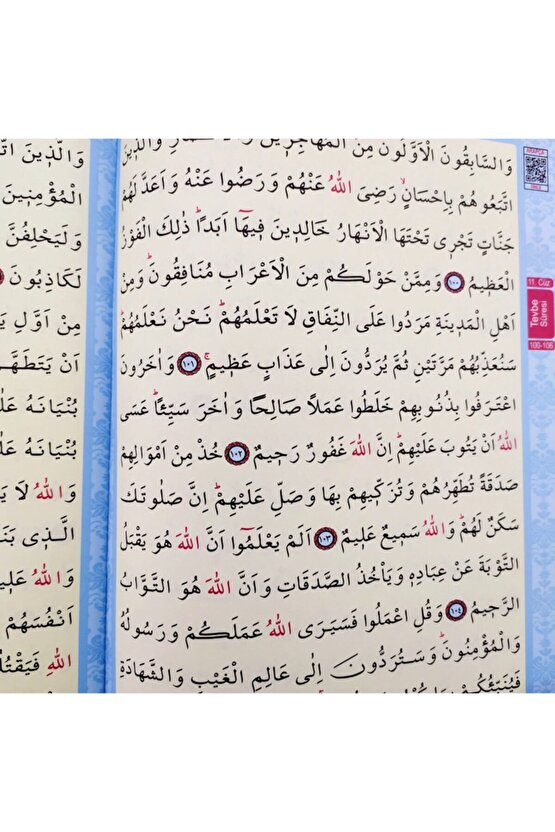 وَالسَّابِقُونَ الْاَوَّلُونَ مِنَ الْمُهَاجِرٖينَ وَالْاَنْصَارِ وَالَّذٖينَ
اتَّبَعُوهُمْ بِاِحْسَانٍۙ رَضِىَ اللّٰهُ عَنْهُمْ وَرَضُوا عَنْهُ وَاَعَدَّ لَهُمْ
جَنَّاتٍ تَجْرٖى تَحْتَهَا الْاَنْهَارُ خَالِدٖينَ فٖيهَٓا اَبَدًاؕ ذٰلِكَ الْفَوْزُ
الْعَظٖيمُ ١٠٠ وَمِمَّنْ حَوْلَكُمْ مِنَ الْاَعْرَابِ مُنَافِقُونَؕ وَمِنْ
اَهْلِ الْمَدٖينَةِ مَرَدُوا عَلَى النِّفَاقِ لَا تَعْلَمُهُمْؕ نَحْنُ نَعْلَمُهُمْؕ
سَنُعَذِّبُهُمْ مَرَّتَيْنِ ثُمَّ يُرَدُّونَ اِلٰى عَذَابٍ عَظٖيمٍۚ ١٠١ وَاٰخَرُونَ
اعْتَرَفُوا بِذُنُوبِهِمْ خَلَطُوا عَمَلًا صَالِحًا وَاٰخَرَ سَيِّئًاؕ عَسَى
اللّٰهُ اَنْ يَتُوبَ عَلَيْهِمْؕ اِنَّ اللّٰهَ غَفُورٌ رَحٖيمٌ ١٠٢ خُذْ مِنْ اَمْوَالِهِمْ
صَدَقَةً تُطَهِّرُهُمْ وَتُزَكّٖيهِمْ بِهَا وَصَلِّ عَلَيْهِمْؕ اِنَّ صَلٰوتَكَ
سَكَنٌ لَهُمْؕ وَاللّٰهُ سَمٖيعٌ عَلٖيمٌ ١٠٣ اَلَمْ يَعْلَمُٓوا اَنَّ اللّٰهَ هُوَ يَقْبَلُ
التَّوْبَةَ عَنْ عِبَادِهٖ وَيَاْخُذُ الصَّدَقَاتِ وَاَنَّ اللّٰهَ هُوَ التَّوَّابُ
الرَّحٖيمُ ١٠٤ وَقُلِ اعْمَلُوا فَسَيَرَى اللّٰهُ عَمَلَكُمْ وَرَسُولُهُ
وَالْمُؤْمِنُونَؕ وَسَتُرَدُّونَ اِلٰى عَالِمِ الْغَيْبِ وَالشَّهَادَةِ
فَيُنَبِّئُكُمْ
11. Cüz
Tevbe
Sûresi
100-106
وَالَّذٖينَ
الْمُؤْمِنٖينَ
وَلَيَحْلِفُنَّ
لَكَاذِبُونَ
مِنْ اَوَّلِ
اَنْ يَتَطَهَّرُوا
بُنْيَانَهُ
بُنْيَانَهُ
وَاللّٰهُ لَا
الَّذٖى
وَاللّٰهُ
اَنْفُسَهُمْ
اللّٰهِ فَيَقْتُلُونَ